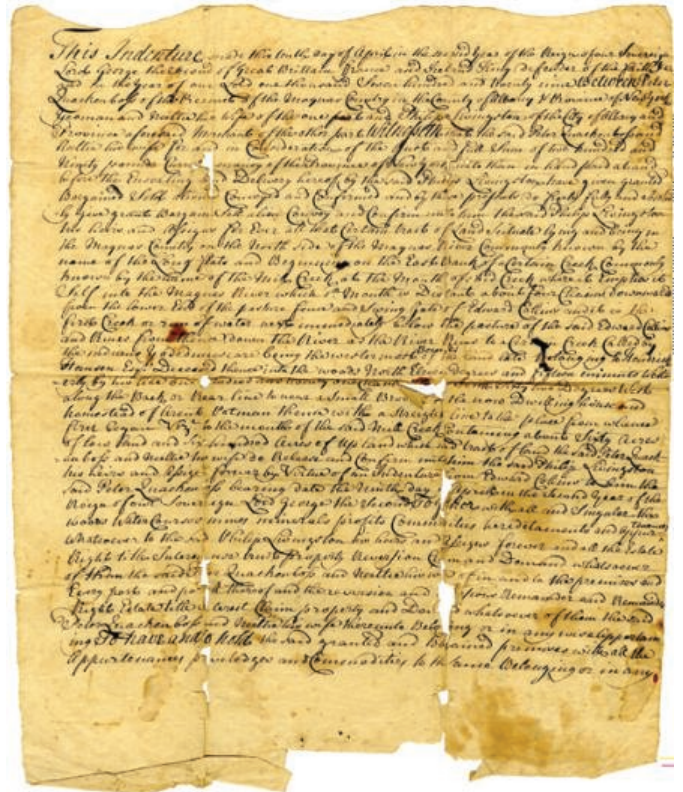 This Indenture made this tenth Day of April in the second year of the Reign of our Sovereign
Lord George the second of Great Brittain France and Ireland King Defender of the Faith &c
and in the year of our Lord one thousand Seven hundred and twenty nine Between Peter
Quackenboss of the Precincts of the Maquas Country in the County of Albany & Province of New York
Yeoman and Neltie his wife of the one part and Philip Livingston of the City of Albany and
Province aforesaid Merchant of the other part Witnesseth that the said Peter Quackenboss and
Neltie his wife for and in Consideration of the quote and full Sum of two hundred and
Ninety pounds money of the Province of New York to them in hand paid at and
before the Ensealing and Delivery hereof by the said Philip Livingston have given granted
Bargained Sold Conveyed and Confirmed and by these presents do fully and
by give grant Bargain Sell alien Convey and Confirm unto him the said Philip Livingston
his heirs and Assigns for Ever all that Certain tract of Land Situate lying and being in
the Maquas Country on the North Side of the Maquas River Commonly known by the
name of the and Beginning on the East Bank of a Certain Creek Commonly
known by the name of the Mill Creek at the Mouth of said Creek where it Empties it
Self into the Maquas River which sd Mouth is Distant about four Chains downward
from the lower End of the pasture fence and of Edward Collins and it is the
first Creek or run of water next immediately below the pasture of the said Edward Collins
and Runs from thence down the River as the River Runs to a Creek Called by
the indians being the westermost of the land late belonging to Hendrick
Hansen Esqr Deceased thence into the woods North Eleven degrees and fifteen minuts
by his line one hundred and twenty one Chains Degrees West
along the Back or Rear line to near a Small Brook the now Dwelling house and
homestead of Arent Potman thence with a Streight line to the place from whence
first began Vizt to the mouth of the said Mill Creek Containing about Sixty Acres
of low Land and Six hundred Acres of Up land which sd tract of land the said Peter Quack
enboss and Neltie his wife do Release and Confirm unto him the said Philip Livingston
his heirs and Assigs forever by Virtue of an Indenture from Edward Collins to him the
said Peter Quackenboss bearing date the Ninth day of April in the Second Year of the
Reign of our Sovereign Lord George the Second Together with all and Singular the
woods Water Courses mines minerals profits Commodities hereditaments and
whatsoever to the said Philip Livingston his heirs and Assigns forever and all the Estate
Right title Interest use trust property Reversion Claim and Demand whatsoever
of them the said Peter Quackenboss and Neltie his wife of in and to the premises and
Every part and parcel thereof and the reversion and Remainder and
Right Estate title Interest Claim property and Demand whatsoever of them the said
Peter Quackenboss and Neltie his wife thereunto Belonging or in any wise appertain
ing To have and to hold the said granted and Bargained premises with all the
Appurtenances priviledges and Commodities to the same Belonging or in any